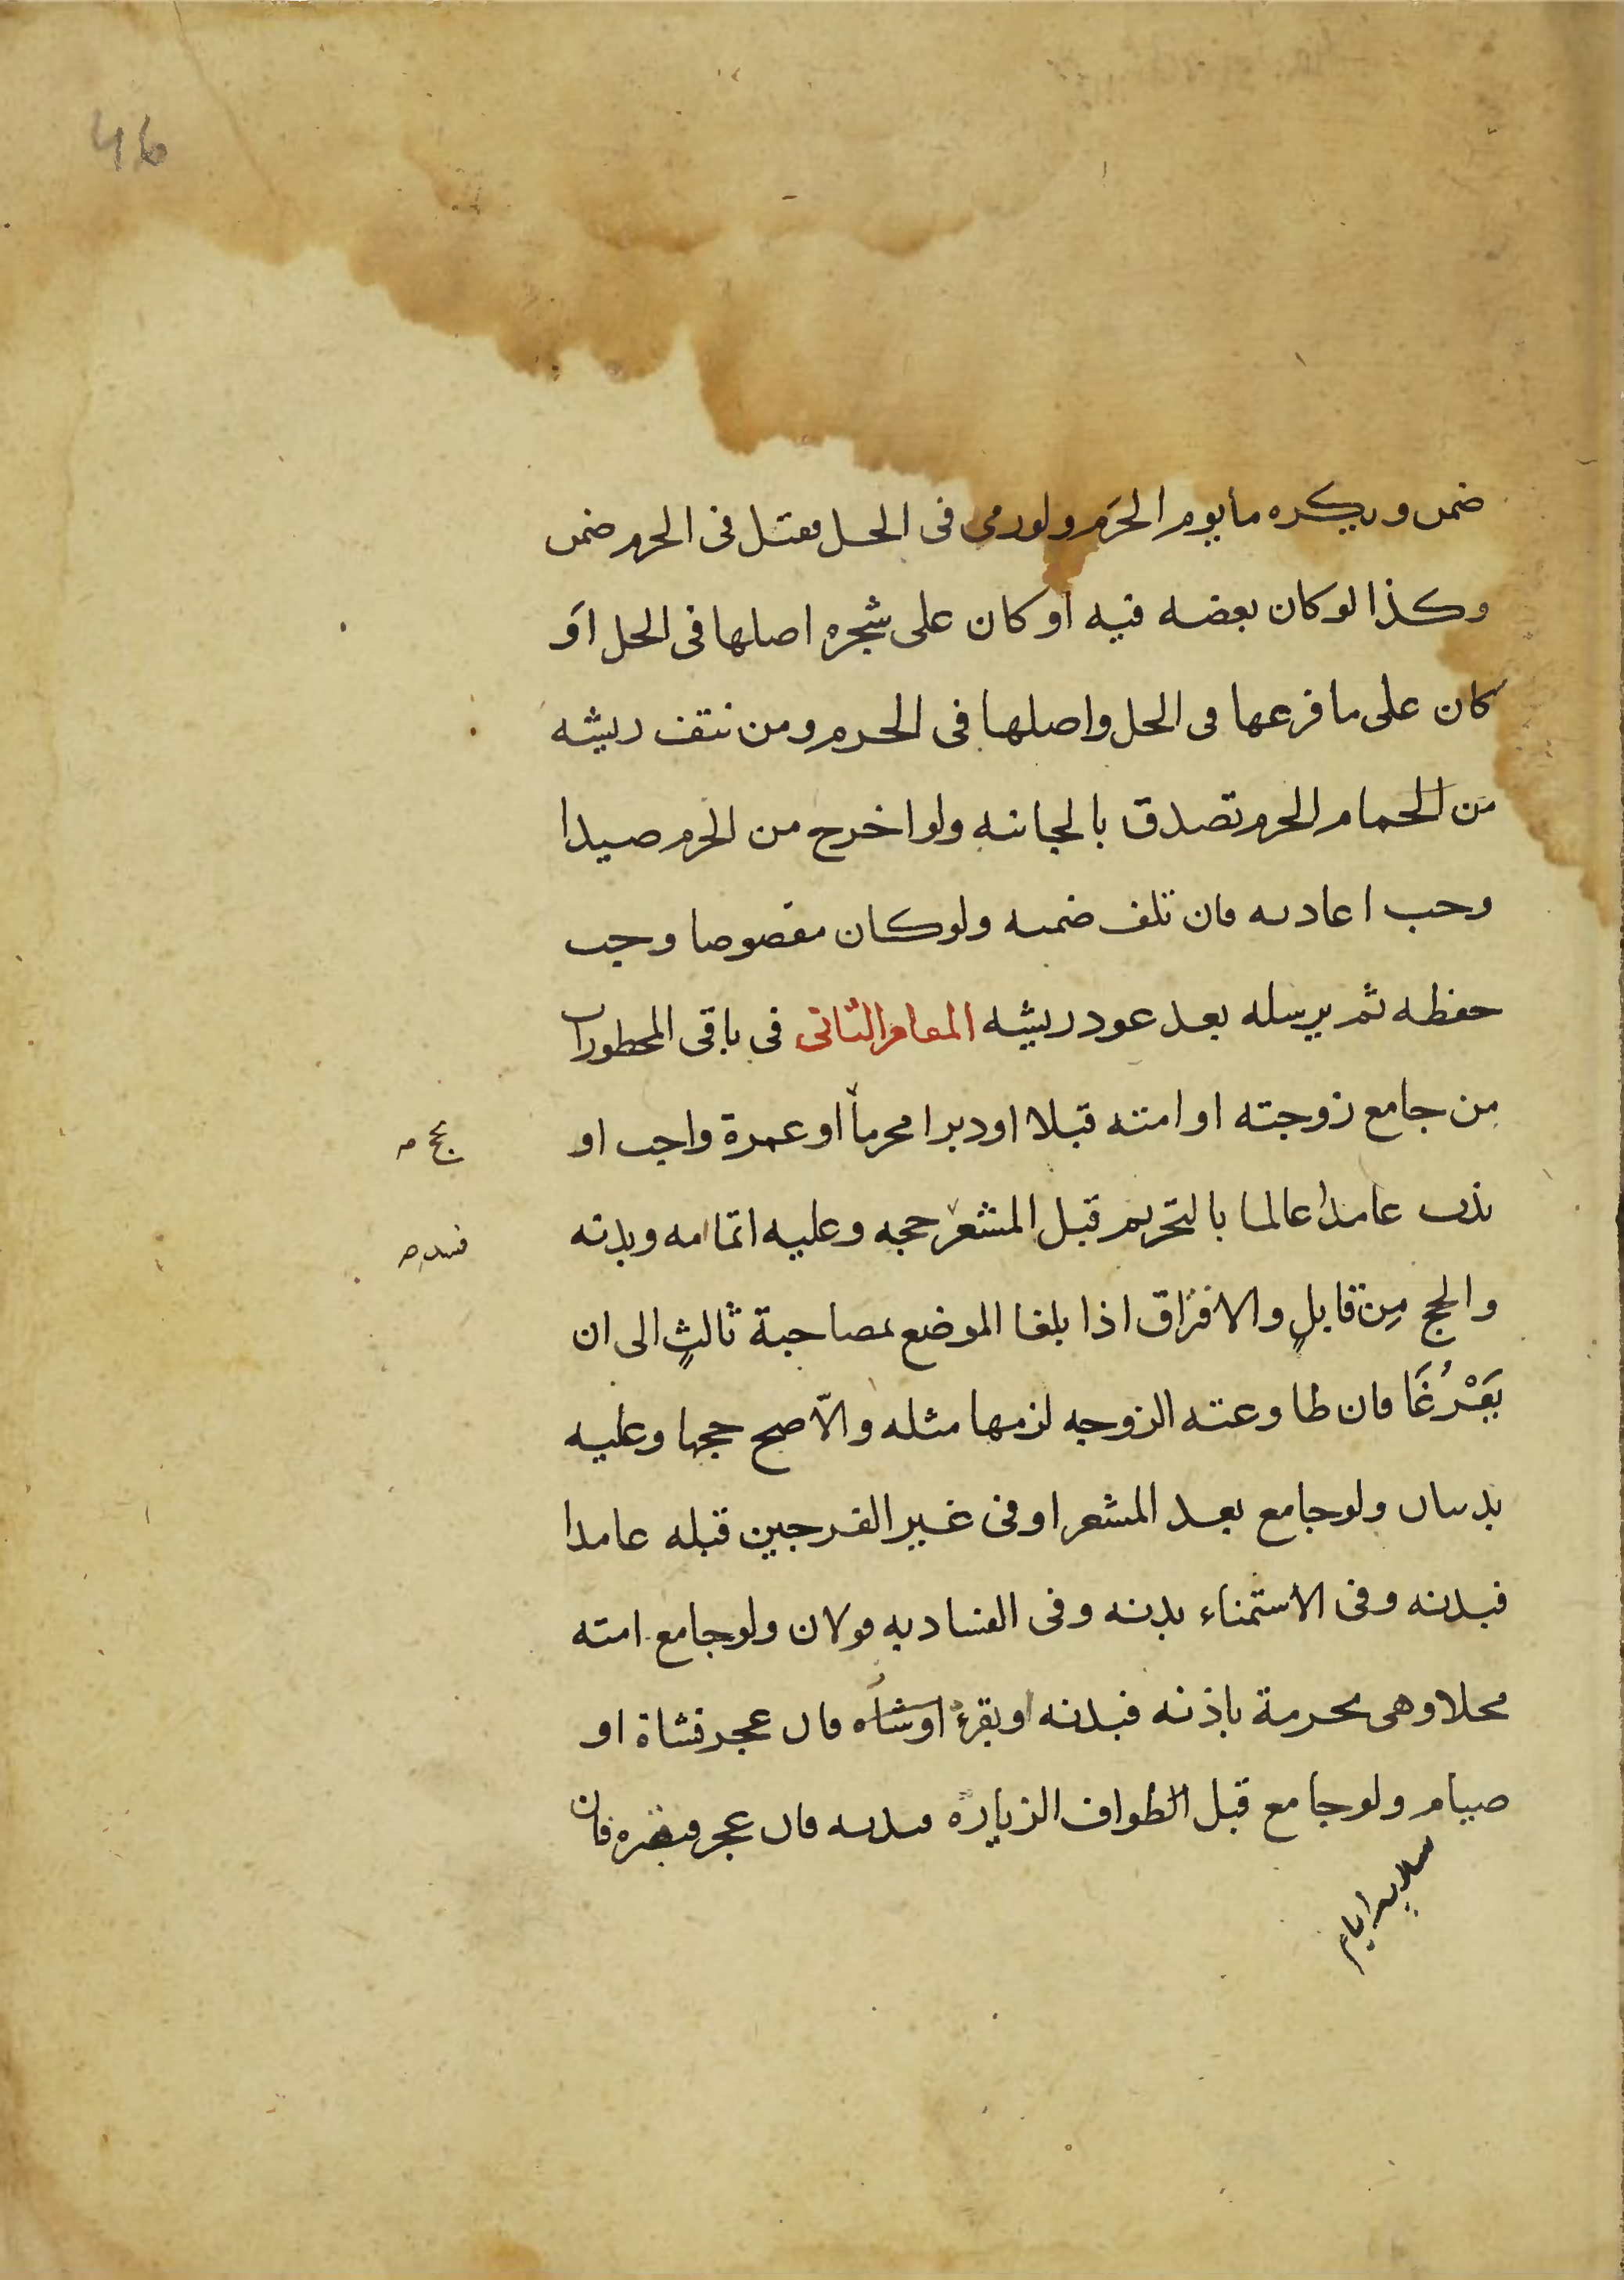 46
ضمن ويكره ما يوم الحرَم ولو رمى فى الحل فقتل فى الحرم ضمن
وكذا لو كان بعضه فيه او كان على شجره اصلها فى الحل اوَ
كان على ما فرعها فى الحل واصلها فى الحرم ومن نتف ريشه
من الحمام الحرم تصدق بالجانيه ولو اخرج من الحرم صيدا
وجب اعادته فان تلف ضمنه ولو كان مقصوصا وجب
حفظه ثم يرسله بعد عود ريشه المقام الثانى فى باقى المحظورات
من جامع زوجته او امته قبلا او دبرا محرما او عمرة واجب او
بحج صح
ندب عامدا عالما بالتحريم قبل المشعر حجه وعليه اتمامه وبدنه
فسد صح
والحج مِن قابلٍ والافتراق اذا بلغا الموضع بمصاحبة ثالثٍ الى ان
يَفْرُغَا فان طاوعته الزوجه لزمها مثله والّا صح حجها وعليه
بدنتان ولو جامع بعد المشعر او فى غير الفرجين قبله عامدا
فبدنه وفى الاستمناء بدنه وفى الفساد به قولان ولو جامع امته
محلا وهى محرمة باذنه فبدنه او بقرة او شاه فان عجز فشاة او
صيام ولو جامع قبل الطواف الزياره فبدنه فان عجز فبقره فان
ثلاثه ايام